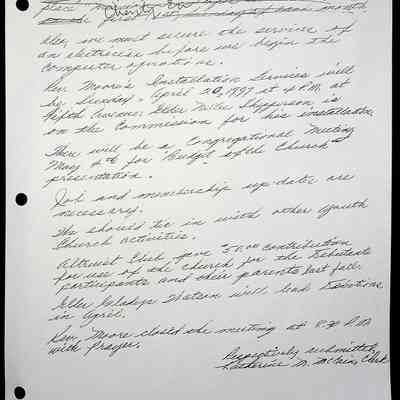 place
Charity
Also, we must secure the service of
an electrician before we begin the
computer operations.
Rev. Moore's Installation Services will
be Sunday - April 20, 1997 at 4 P.M. at
Fifth Avenue. Elder Willie Shepperson is
on the Commission for his installation.
There will be a Congregational Meeting
May 4th for "Budget of the Church"
presentation.
Job and membership up-date are
necessary.
We should tie in with other Youth
Church activities.
Altruist Club gave 50.00 contribution
for use of the Church for the Debutants
participants and their parents last fall.
Elder Gladys Watson will lead Devotions
in April.
Rev. Moore closed the meeting at 8:30 P.M.
with Prayer.
Respectively submitted,
Katherine M. McCain, Clerk